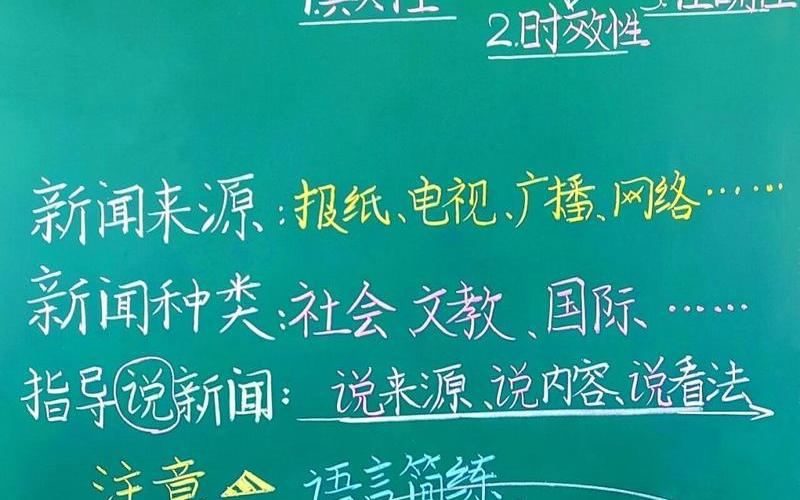 1.真实性
2.时效性
3.准确性
新闻来源:报纸、电视、广播、网络……
新闻种类:社会、文教、国际、……
指导说新闻:说来源、说内容、说看法
注意 语言简练